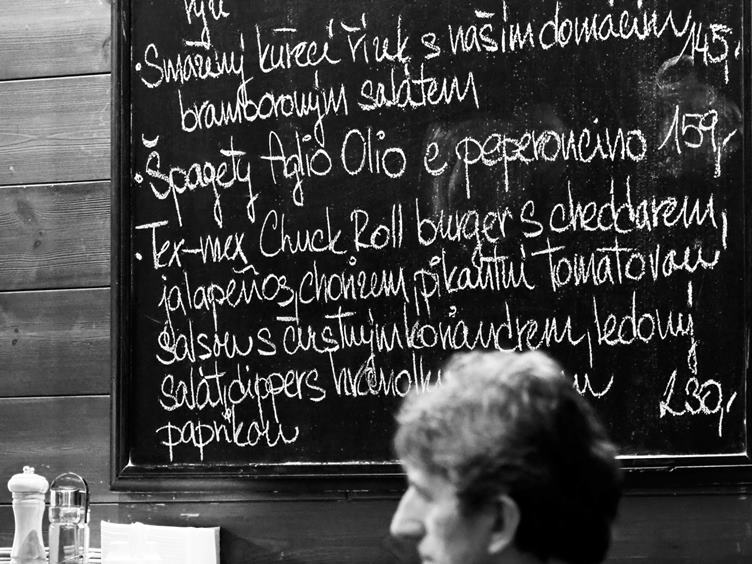 rýží
• Smažený kuřecí řízek s naším domácím 145,-
bramborovým salátem
• Špagety Aglio Olio e peperoncino 159,-
• Tex-mex Chuck Roll burger s cheddarem,
jalapeños, chorizem, pikantní tomatovou
salsou s čerstvým koriandrem, ledový
salát, dippers hranolky
paprikou 230,-